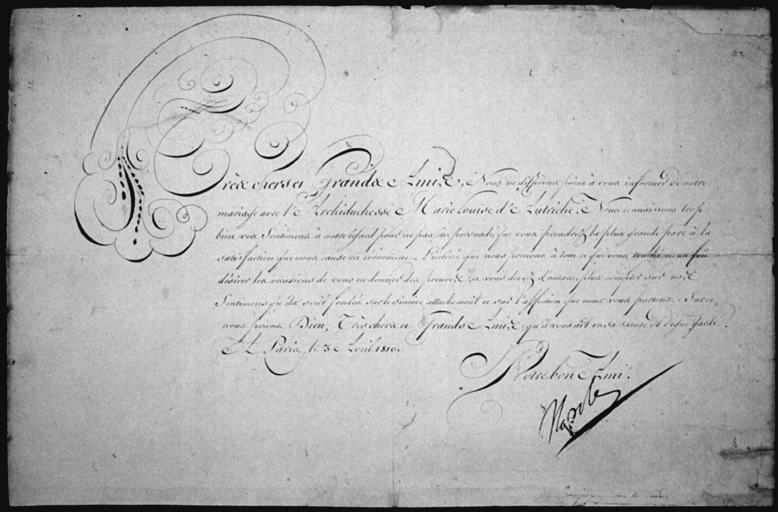 Très chers et Grands Amis, Nous ne différons point à vous informer de notre
mariage avec l'Archiduchesse Marie Louise d'Autriche. Nous connaissons trop
bien vos Sentimens à notre égard pour ne pas être persuadés que vous prendrez la plus grande part à la
satisfaction que nous cause cet événement. L'intérêt que nous prenons à tout ce qui vous nous fait
désirer les occasions de vous en donner des preuves, et vous devez d'autant plus compter sur nos
Sentimens qu'ils sont fondés sur le sincère attachement et sur l'affection que nous vous portons. Sur ce,
nous prions Dieu, Très chers et Grands Amis, qu'il vous ait en sa sainte et digne garde.
A Paris, le 3 Avril 1810.
Votre bon Ami.
Napole